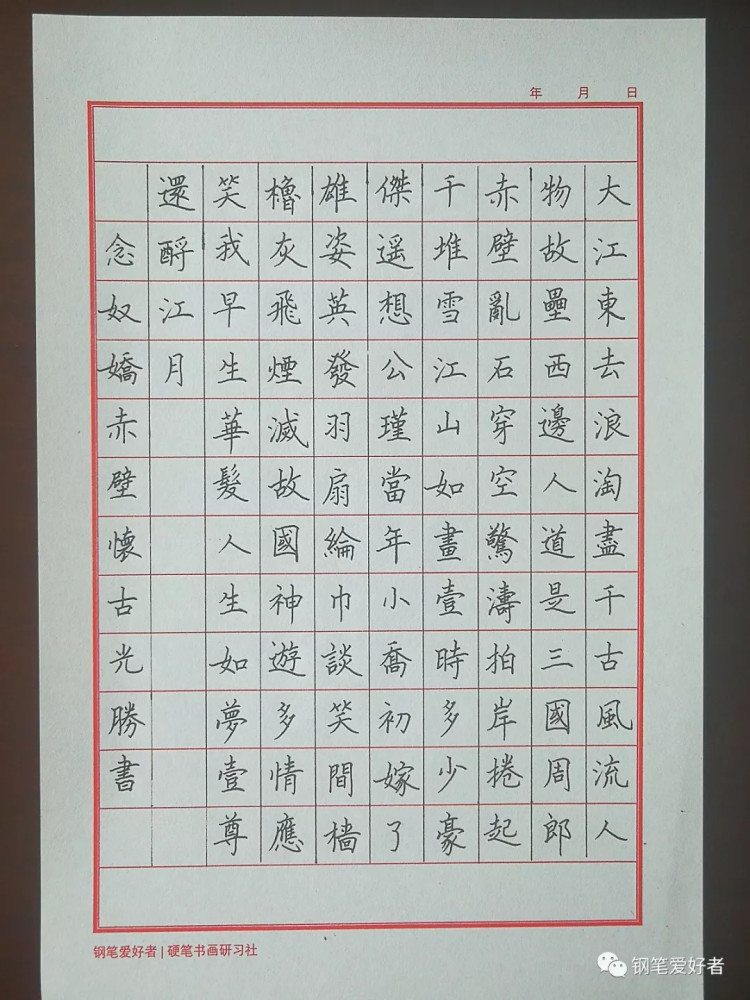 年 月 日
大江東去浪淘盡千古風流人
物故壘西邊人道是三國周郎
赤壁亂石穿空驚濤拍岸捲起
千堆雪江山如畫壹時多少豪
傑遥想公瑾當年小喬初嫁了
雄姿英發羽扇綸巾談笑間檣
櫓灰飛煙滅故國神遊多情應
笑我早生華髮人生如夢壹尊
還酹江月
念奴嬌赤壁懷古光勝書
钢笔爱好者 | 硬笔书画研习社
钢笔爱好者